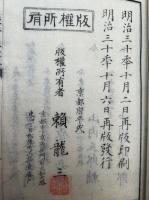 明治三十年十月二日再版印刷
明治三十年十月六日再版發行
版權所有
京都府平民
版權所有者 賴龍三